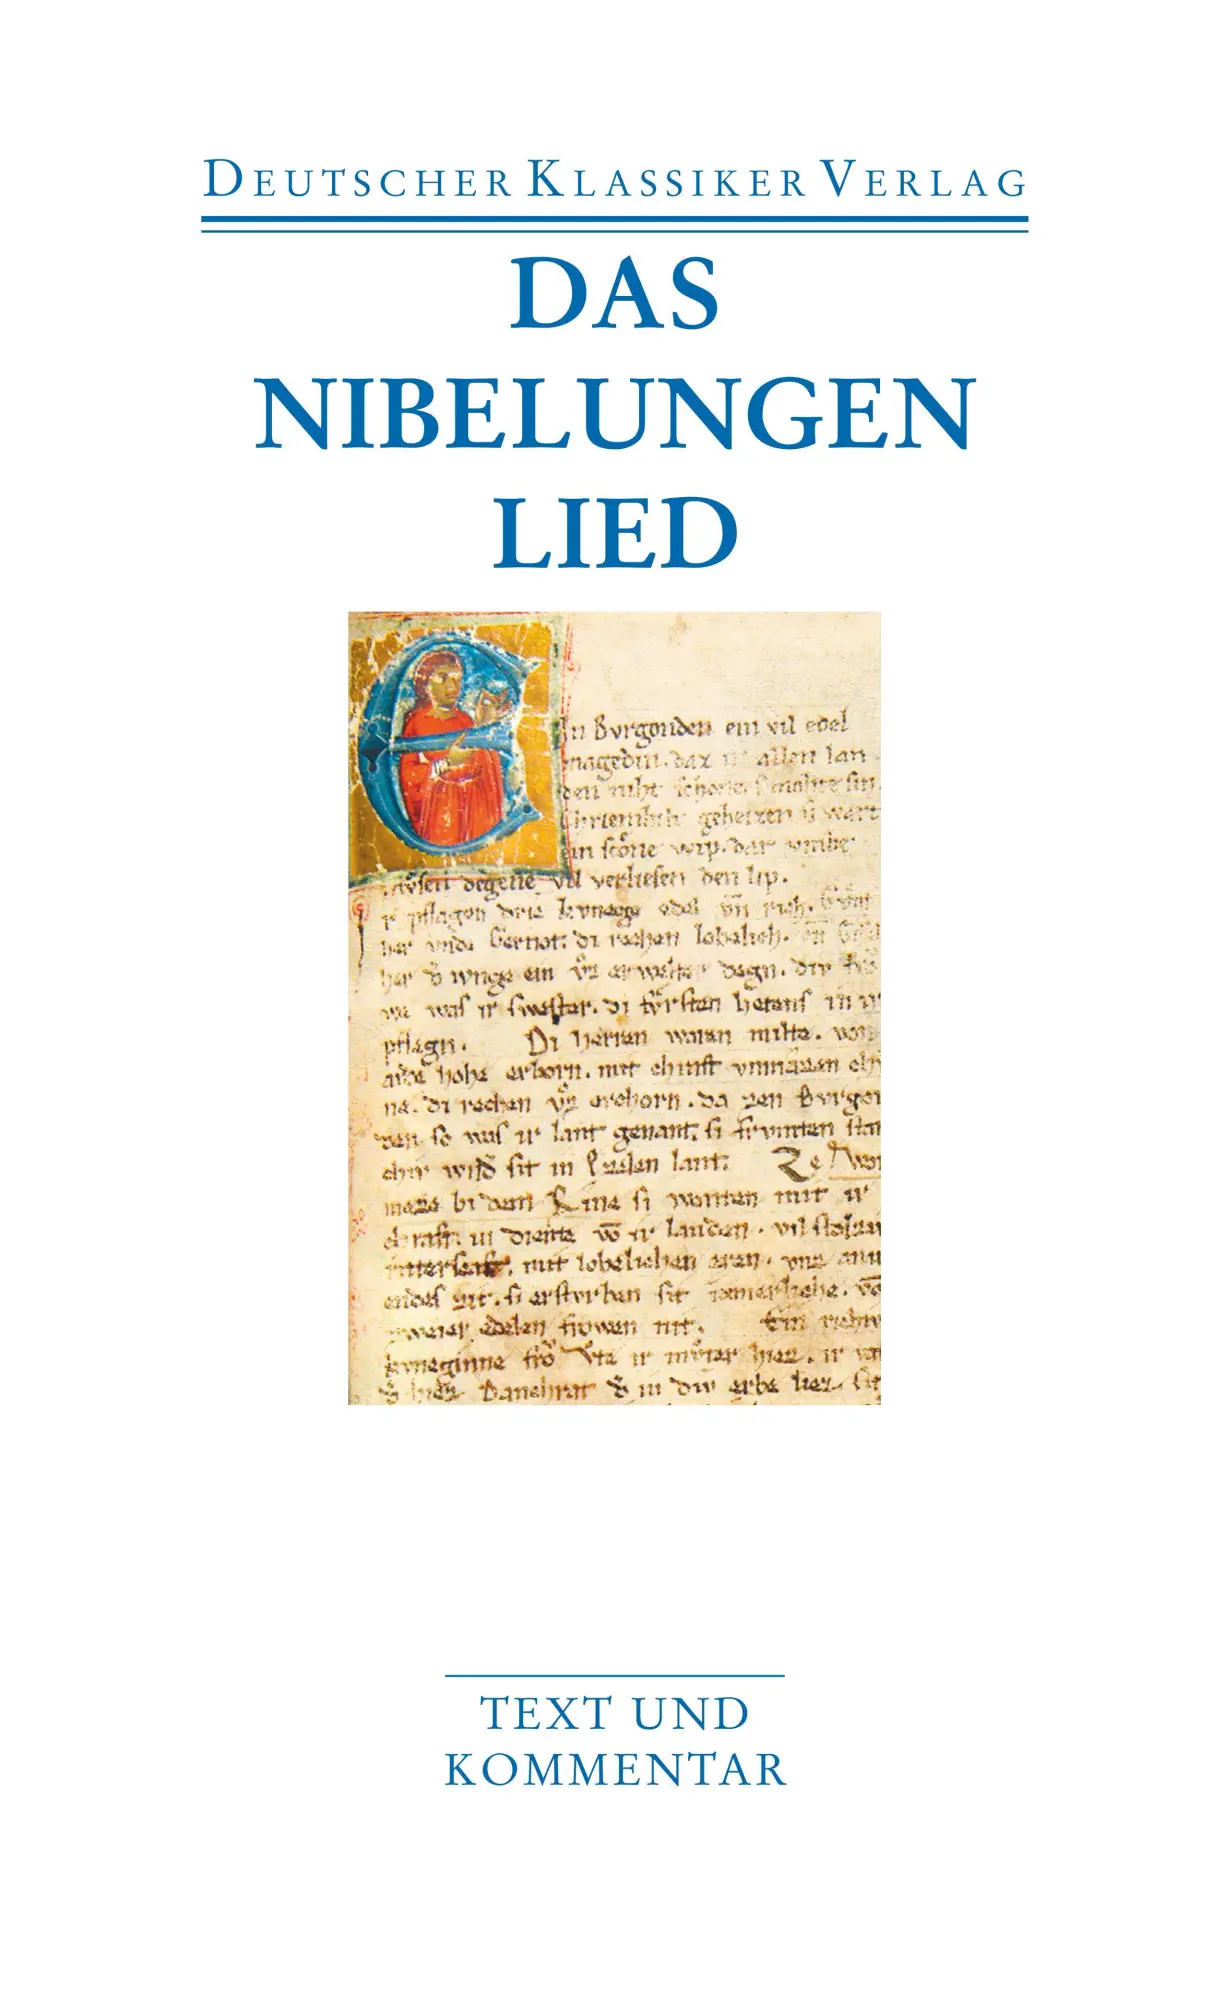 DEUTSCHER KLASSIKER VERLAG
DAS
NIBELUNGEN
LIED
In Burgonden ein vil edel
magedin. daz in allen lan
den niht schoners mohte sin.
Chriemhilt geheizen si wart
ein scone wip. dar vmbe
degene vil verliesen den lip.
ir pflagen drie kvnege edel vn̄ rich.
her vnde Gernot. di rechen lobelich.
her d ivnge ein vz erwelter degn. div
was ir swester. di fvrsten hetens in ir
pflegn. Di herren waren milte. von
arde hohe erborn. mit chraft vnmazen
ne. di rechen vz erchorn. da zen Bvrgon
den so was ir lant genant. si frvmten star
chiv wnd sit in Ezelen lant. Ze Wor
meze bi dem Rine si wonten mit ir
chraft. in diente von ir landen. vil stolziv
ritterscaft. mit lobelichen eren. vnz
endes zit. si ersturben sit iæmerliche. von
zweier edelen frowen nit. Ein richiv
kvneginne fro Vte ir mvter hiez. ir
d hiez Danchrat d in div erbe liez. sit
TEXT UND
KOMMENTAR